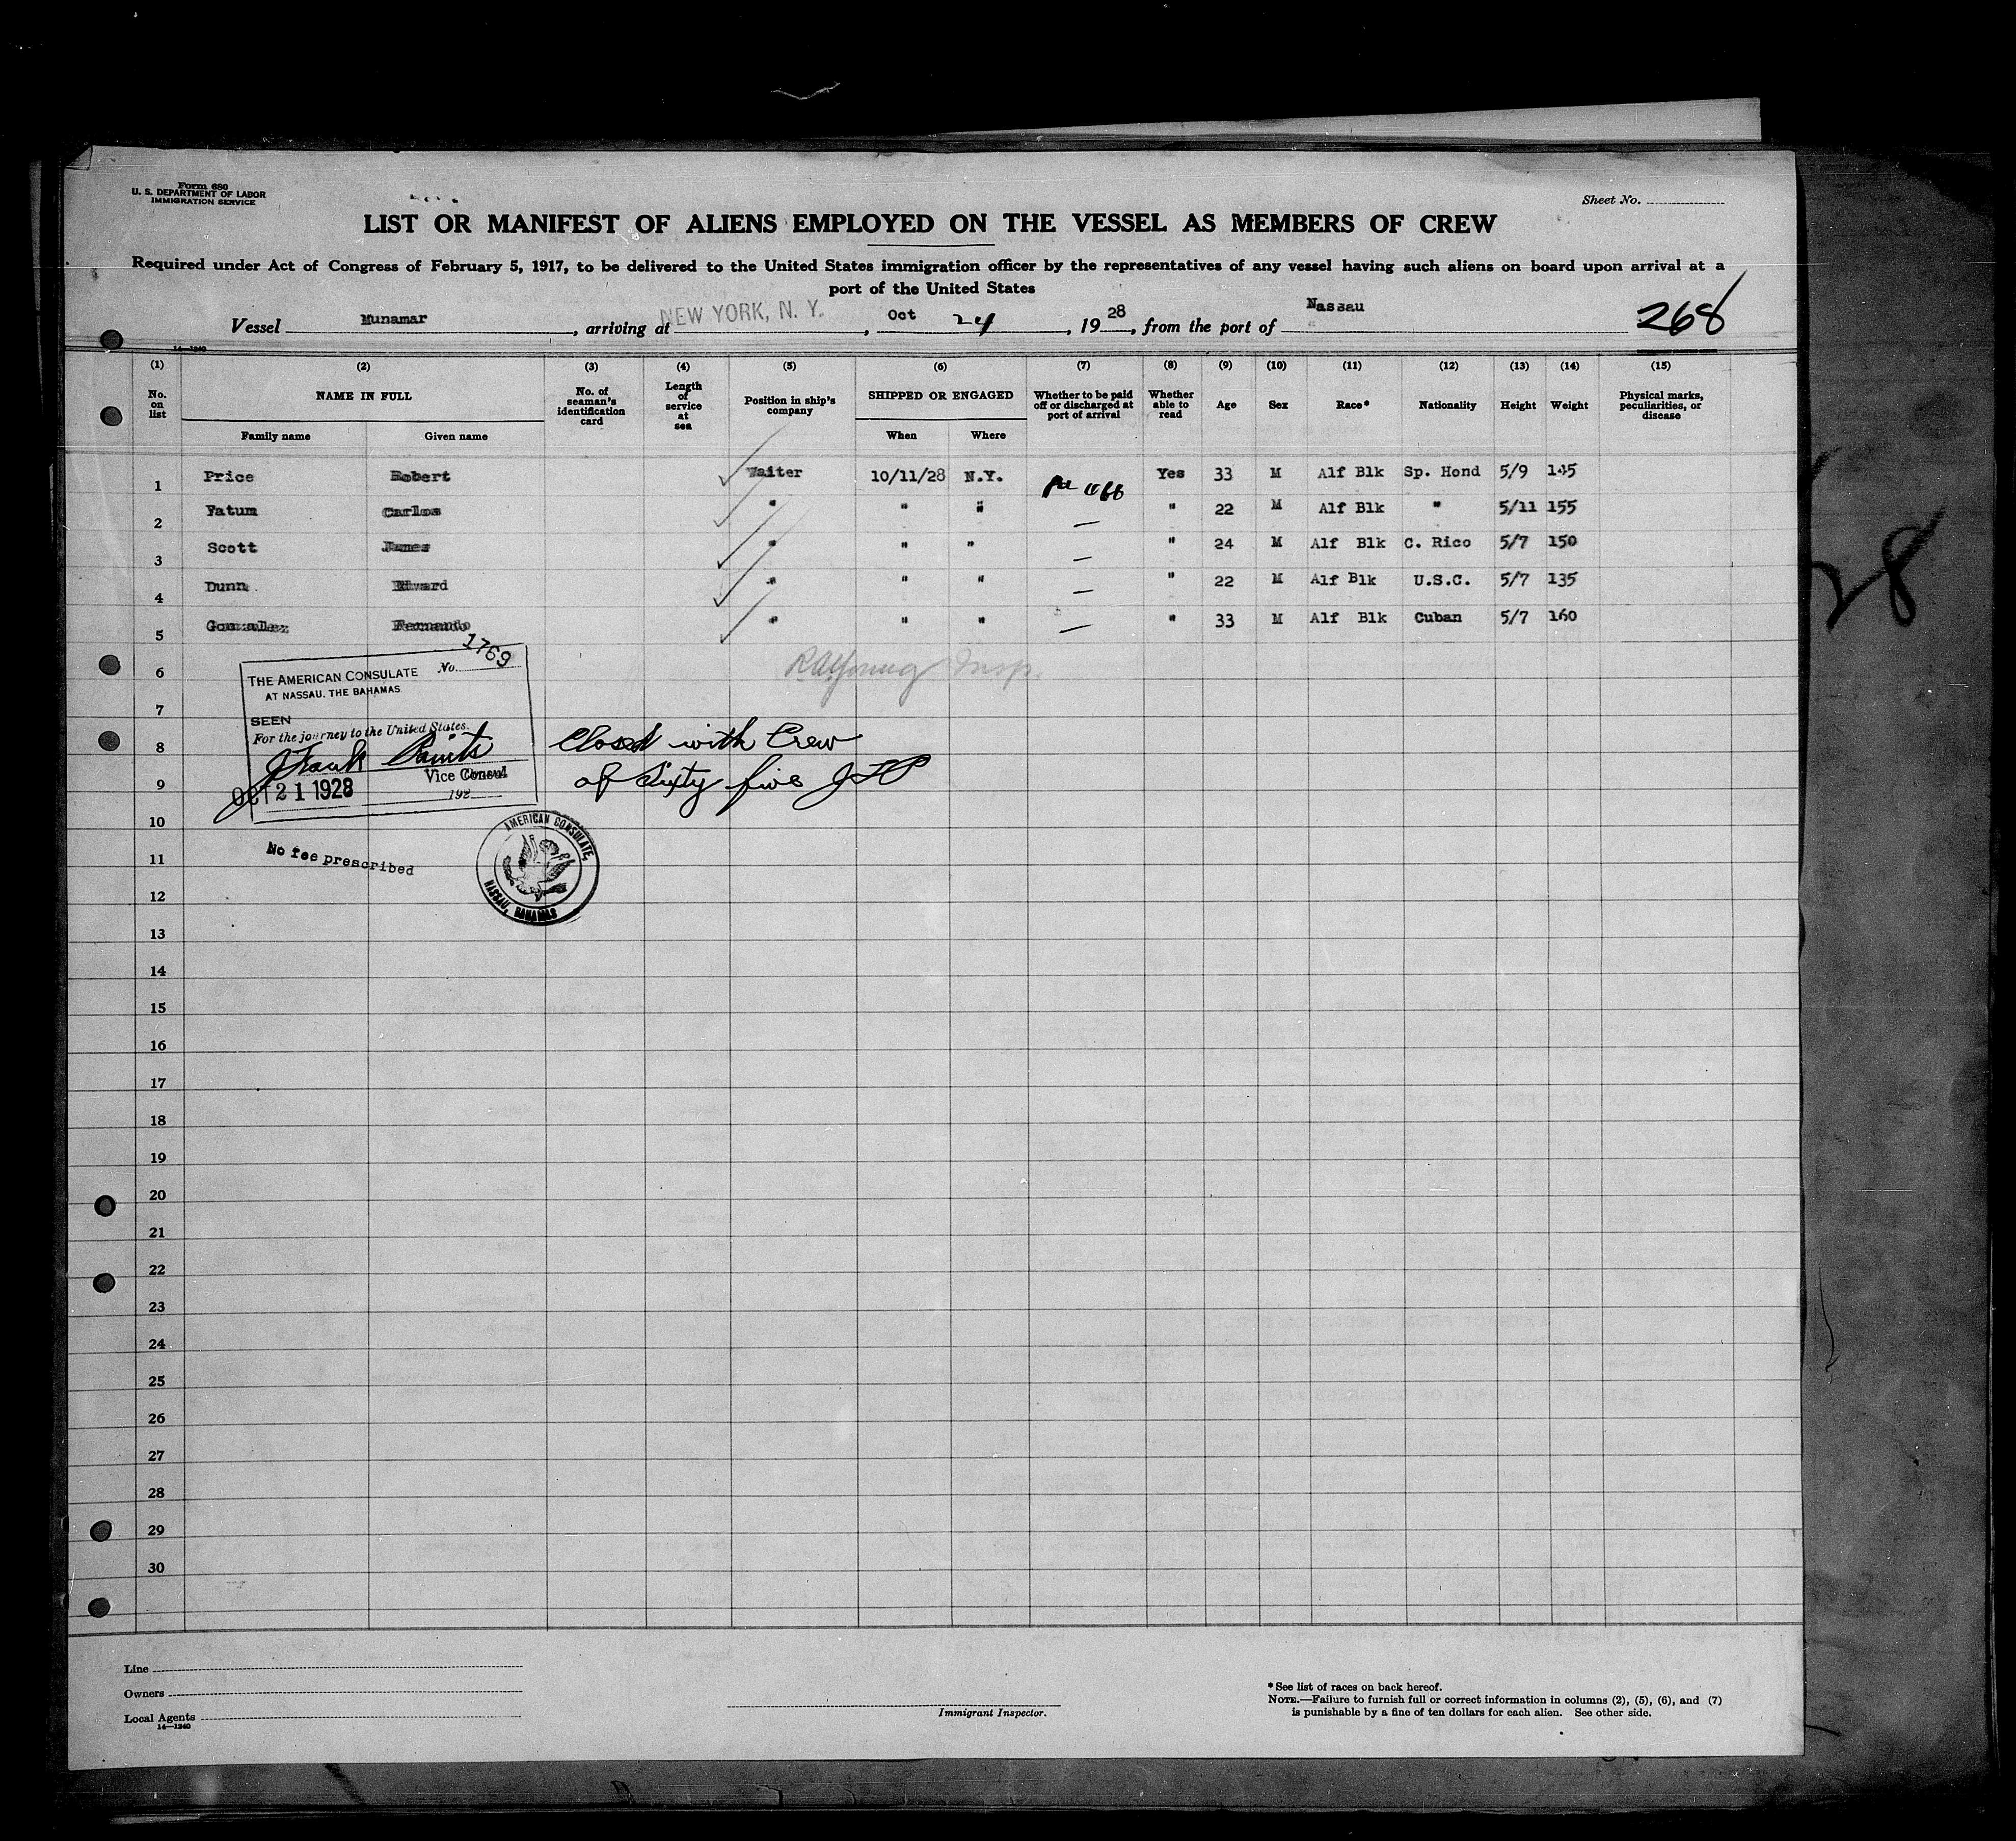 Form 680
U. S. DEPARTMENT OF LABOR
IMMIGRATION SERVICE
Sheet No.
LIST OR MANIFEST OF ALIENS EMPLOYED ON THE VESSEL AS MEMBERS OF CREW
Required under Act of Congress of February 5, 1917, to be delivered to the United States immigration officer by the representatives of any vessel having such aliens on board upon arrival at a
port of the United States
Vessel Munamar, arriving at NEW YORK, N. Y., Oct 24, 1928, from the port of Nassau 268
14—1240
(1) (2) (3) (4) (5) (6) (7) (8) (9) (10) (11) (12) (13) (14) (15)
No. on list NAME IN FULL No. of seaman's identification card Length of service at sea Position in ship's company SHIPPED OR ENGAGED Whether to be paid off or discharged at port of arrival Whether able to read Age Sex Race* Nationality Height Weight Physical marks, peculiarities, or disease
Family name Given name When Where
1 Price Robert Waiter 10/11/28 N.Y. Yes 33 M Alf Blk Sp. Hond 5/9 145
2 Yatum Carlos " " " — " 22 M Alf Blk " 5/11 155
3 Scott James " " " — " 24 M Alf Blk C. Rico 5/7 150
4 Dunn Edward " " " — " 22 M Alf Blk U.S.C. 5/7 135
5 Gonzalez Fernando " " " — " 33 M Alf Blk Cuban 5/7 160
6
7
8
9
10
11
12
13
14
15
16
17
18
19
20
21
22
23
24
25
26
27
28
29
30
THE AMERICAN CONSULATE No. 1769
AT NASSAU, THE BAHAMAS
SEEN
For the journey to the United States.
Vice Consul
OCT 21 1928 192
Insp.
Closed with Crew
of Sixty five
No fee prescribed
AMERICAN CONSULATE,
NASSAU, BAHAMAS
28
Line
Owners
Local Agents
14—1240
Immigrant Inspector.
*See list of races on back hereof.
NOTE.—Failure to furnish full or correct information in columns (2), (5), (6), and (7)
is punishable by a fine of ten dollars for each alien. See other side.